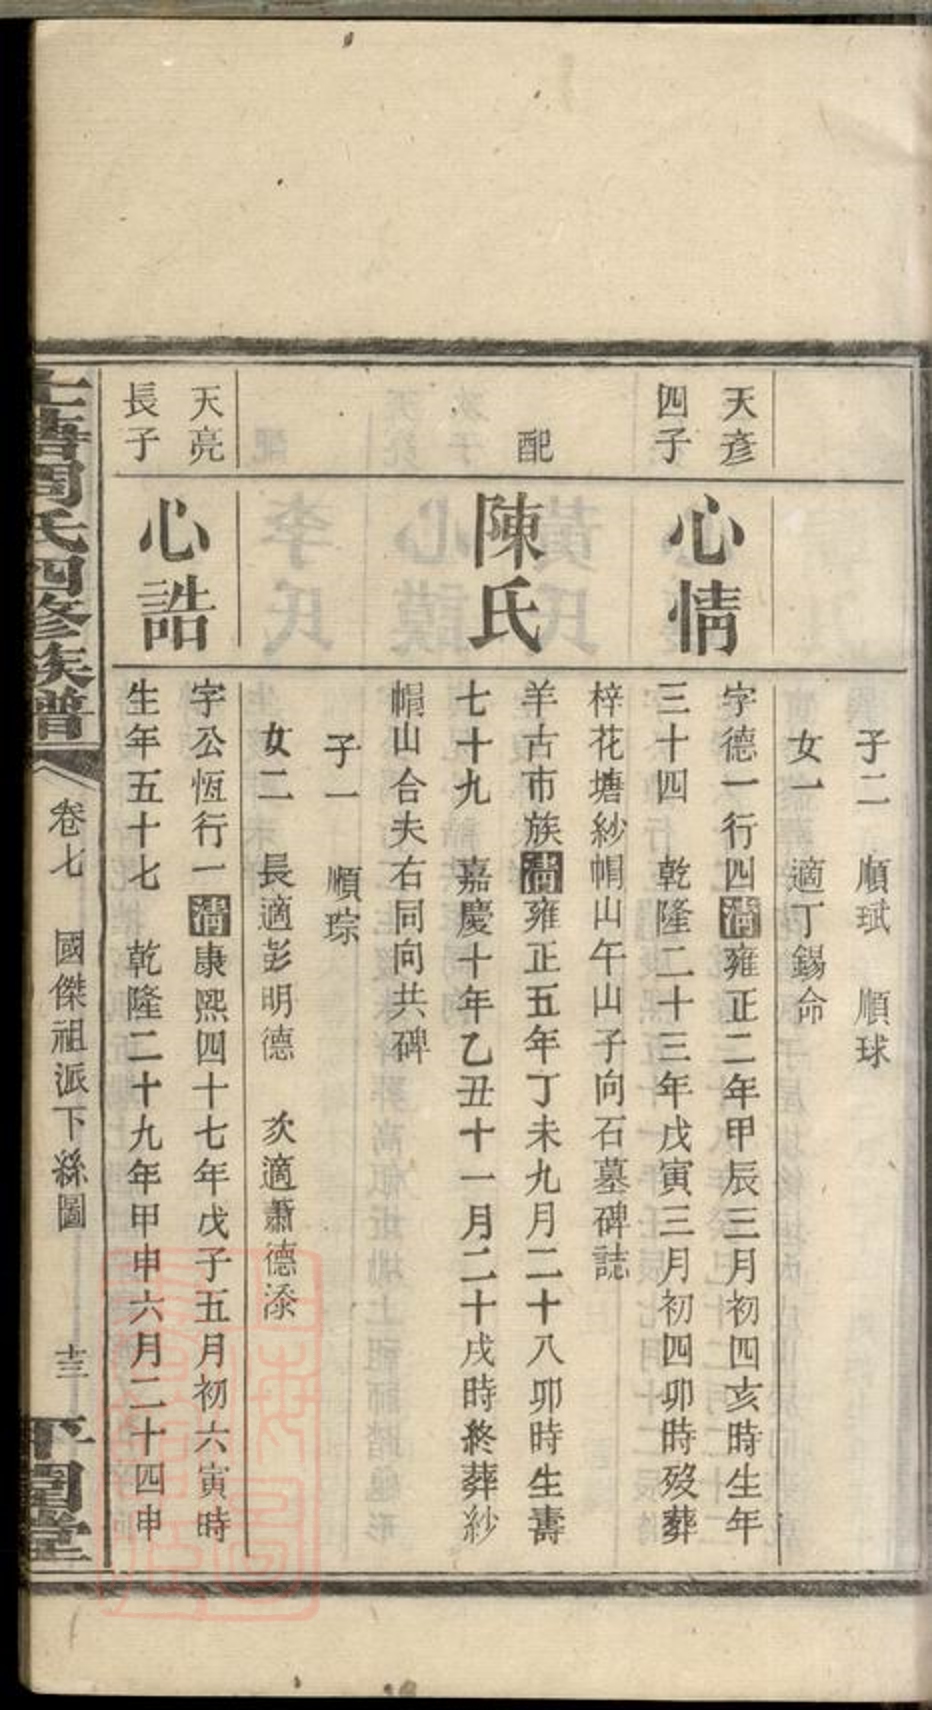 子二　順珷　順球
女一　適丁錫命
天彥
四子
心情
字德一行四清雍正二年甲辰三月初四亥時生年
三十四　乾隆二十三年戊寅三月初四卯時歿葬
梓花塘紗帽山午山子向石墓碑誌
配
陳氏
羊古市族清雍正五年丁未九月二十八卯時生壽
七十九　嘉慶十年乙丑十一月二十戌時終葬紗
帽山合夫右同向共碑
子一　順琮
女二　長適彭明德　次適蕭德添
天亮
長子
心誥
字公恆行一清康熙四十七年戊子五月初六寅時
生年五十七　乾隆二十九年甲申六月二十四申
周氏四修族譜
卷七　國傑祖派下綠圖
十三